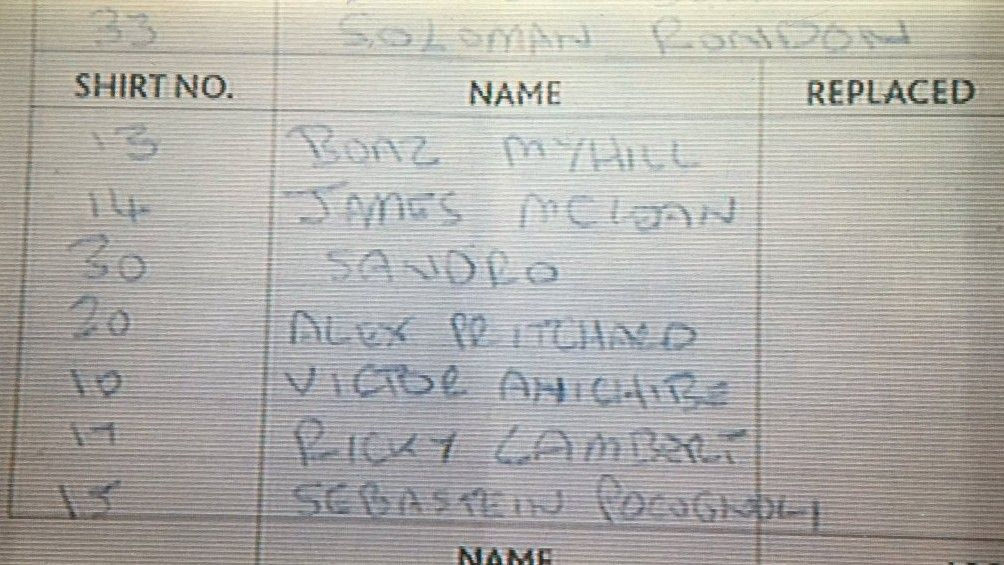 33 SOLOMAN RONDON
SHIRT NO. NAME REPLACED
13 BOAZ MYHILL
14 JAMES MCLEAN
30 SANDRO
20 ALEX PRITCHARD
10 VICTOR ANICHIBE
17 RICKY LAMBERT
15 SEBASTEIN POCOGNOLI
NAME